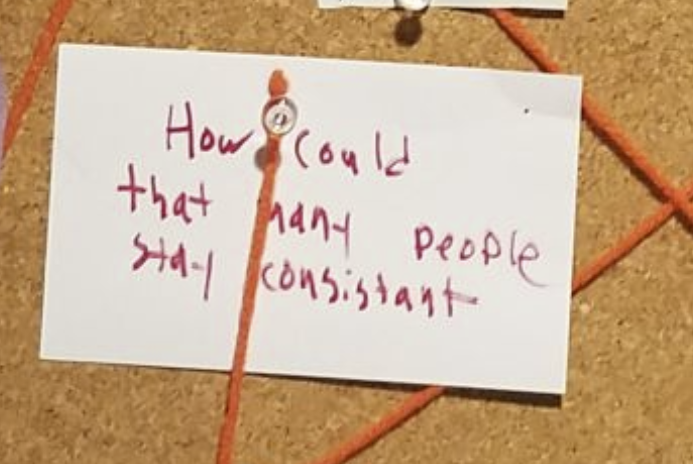 How could
that many people
stay consistant